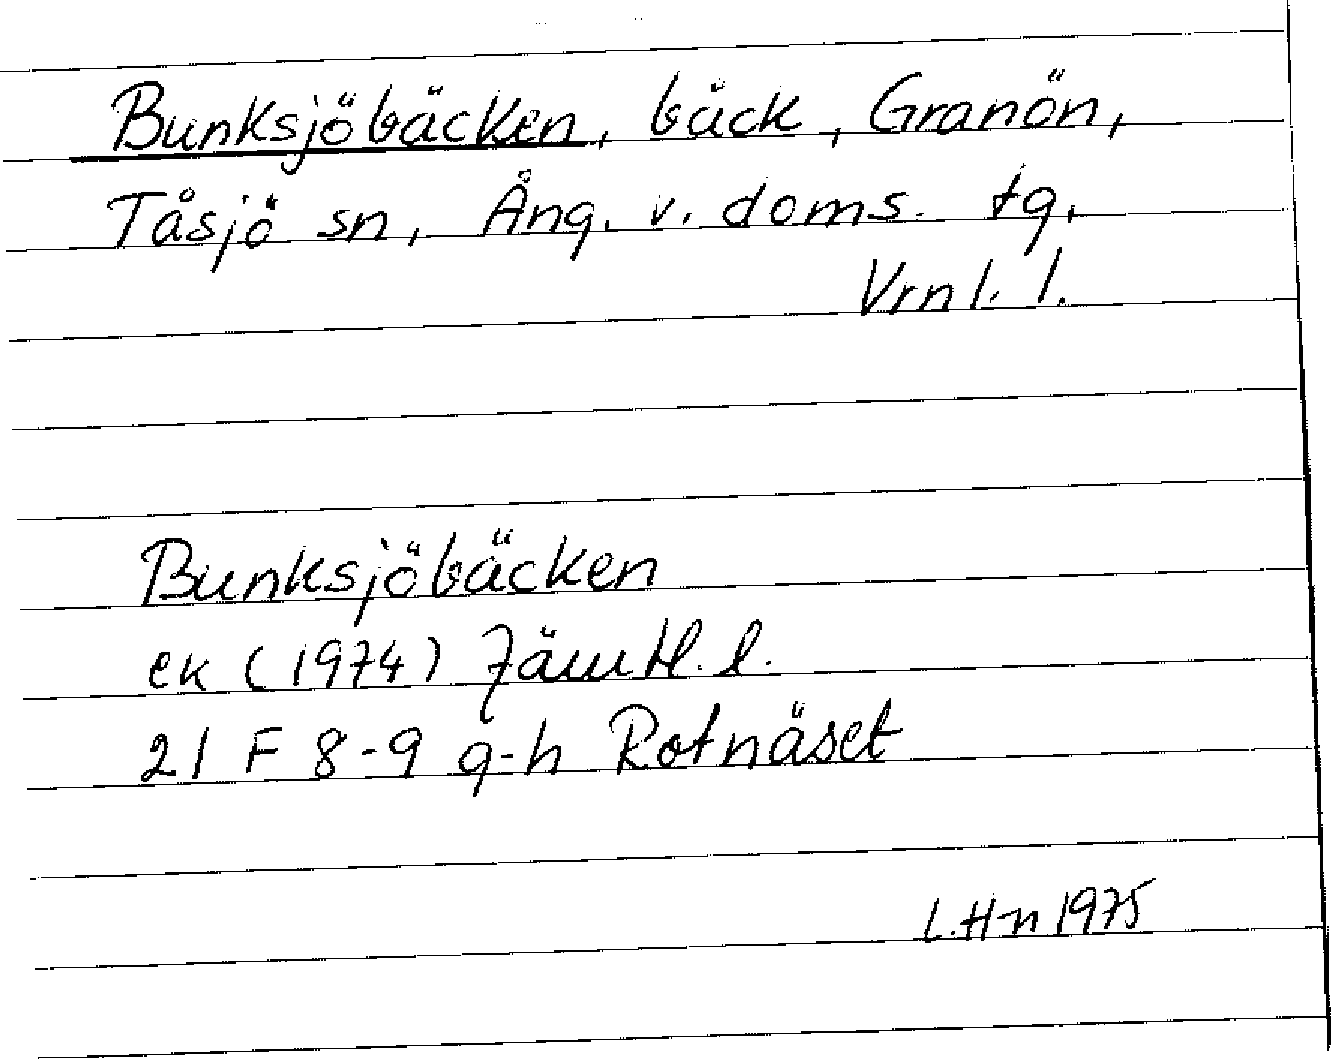 Bunksjöbäcken, bäck, Granön,
Tåsjö sn, Ång. v. doms. tg.
Vrnl. l.
Bunksjöbäcken
ek (1974) Jämtl. l.
21 F 8-9 g-h Rotnäset
L. Hn 1975